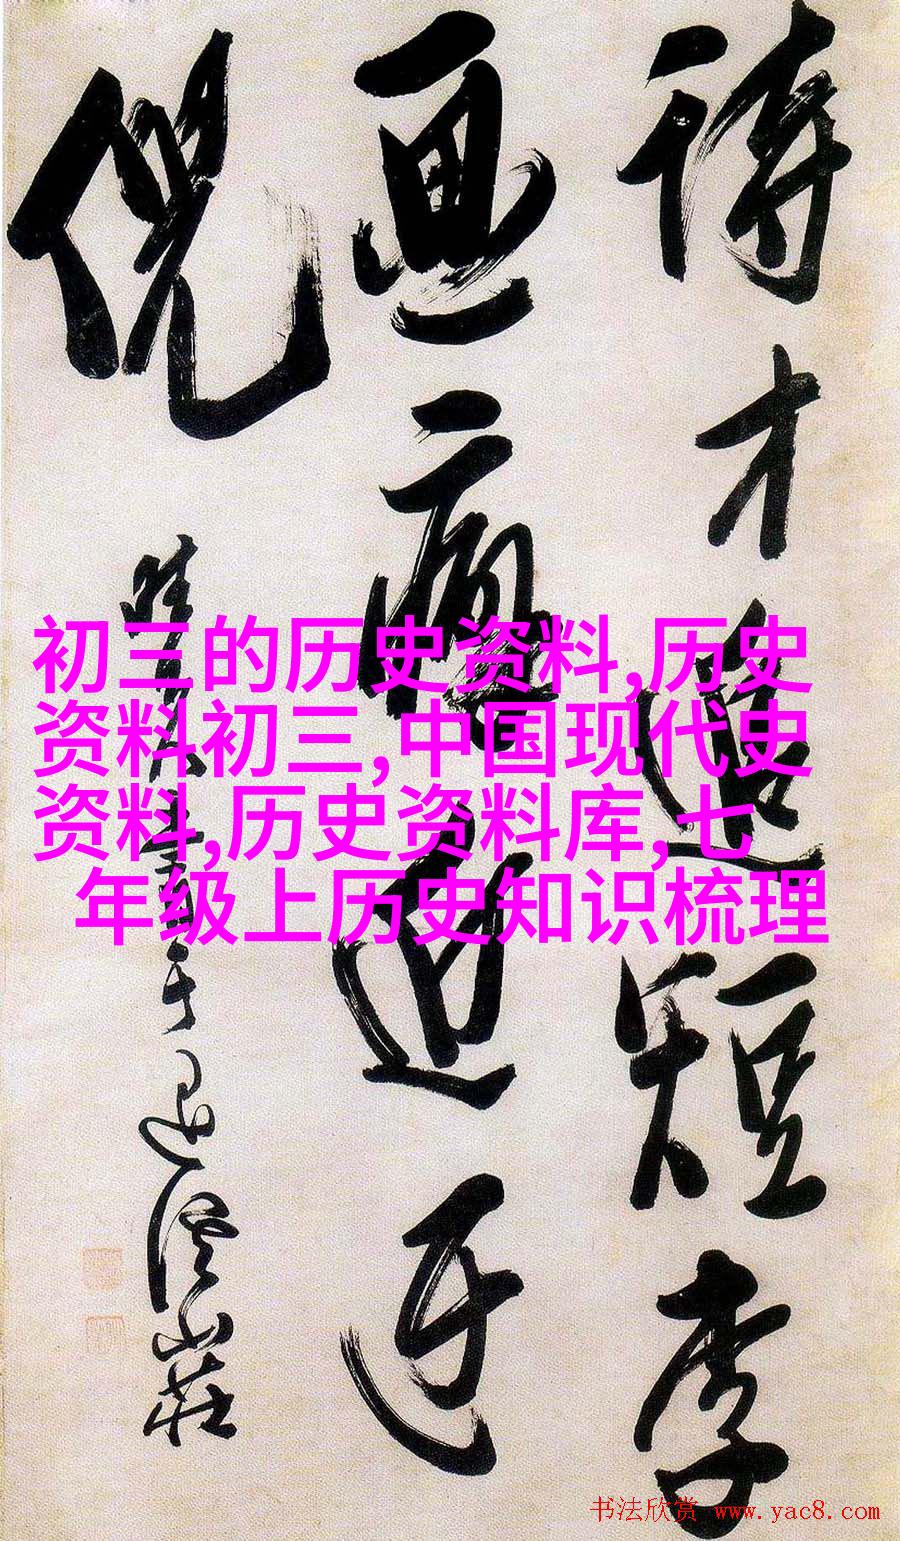 诗才追短李
画癖近迂
倪
初三的历史资料,历史
资料初三,中国现代史
资料,历史资料库,七
年级上历史知识梳理
书法欣赏 www.yac8.com